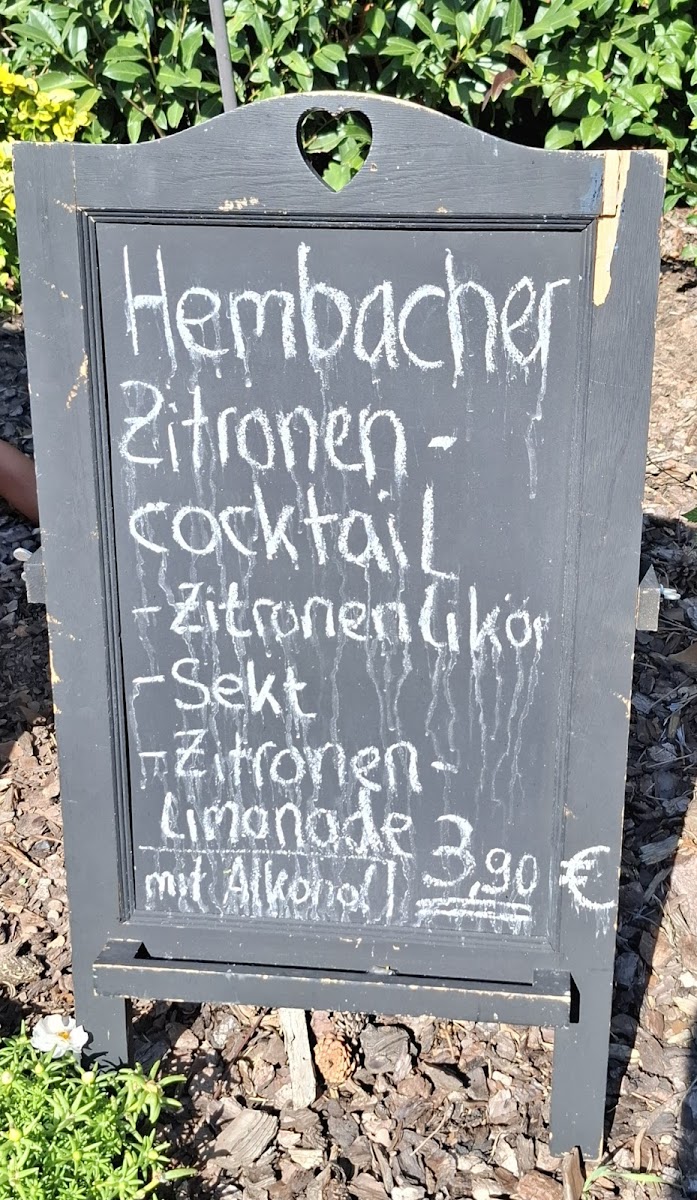 Hembacher
Zitronen-
cocktail
- Zitronenlikör
- Sekt
- Zitronen-
Limonade
mit Alkohol! 3,90 €